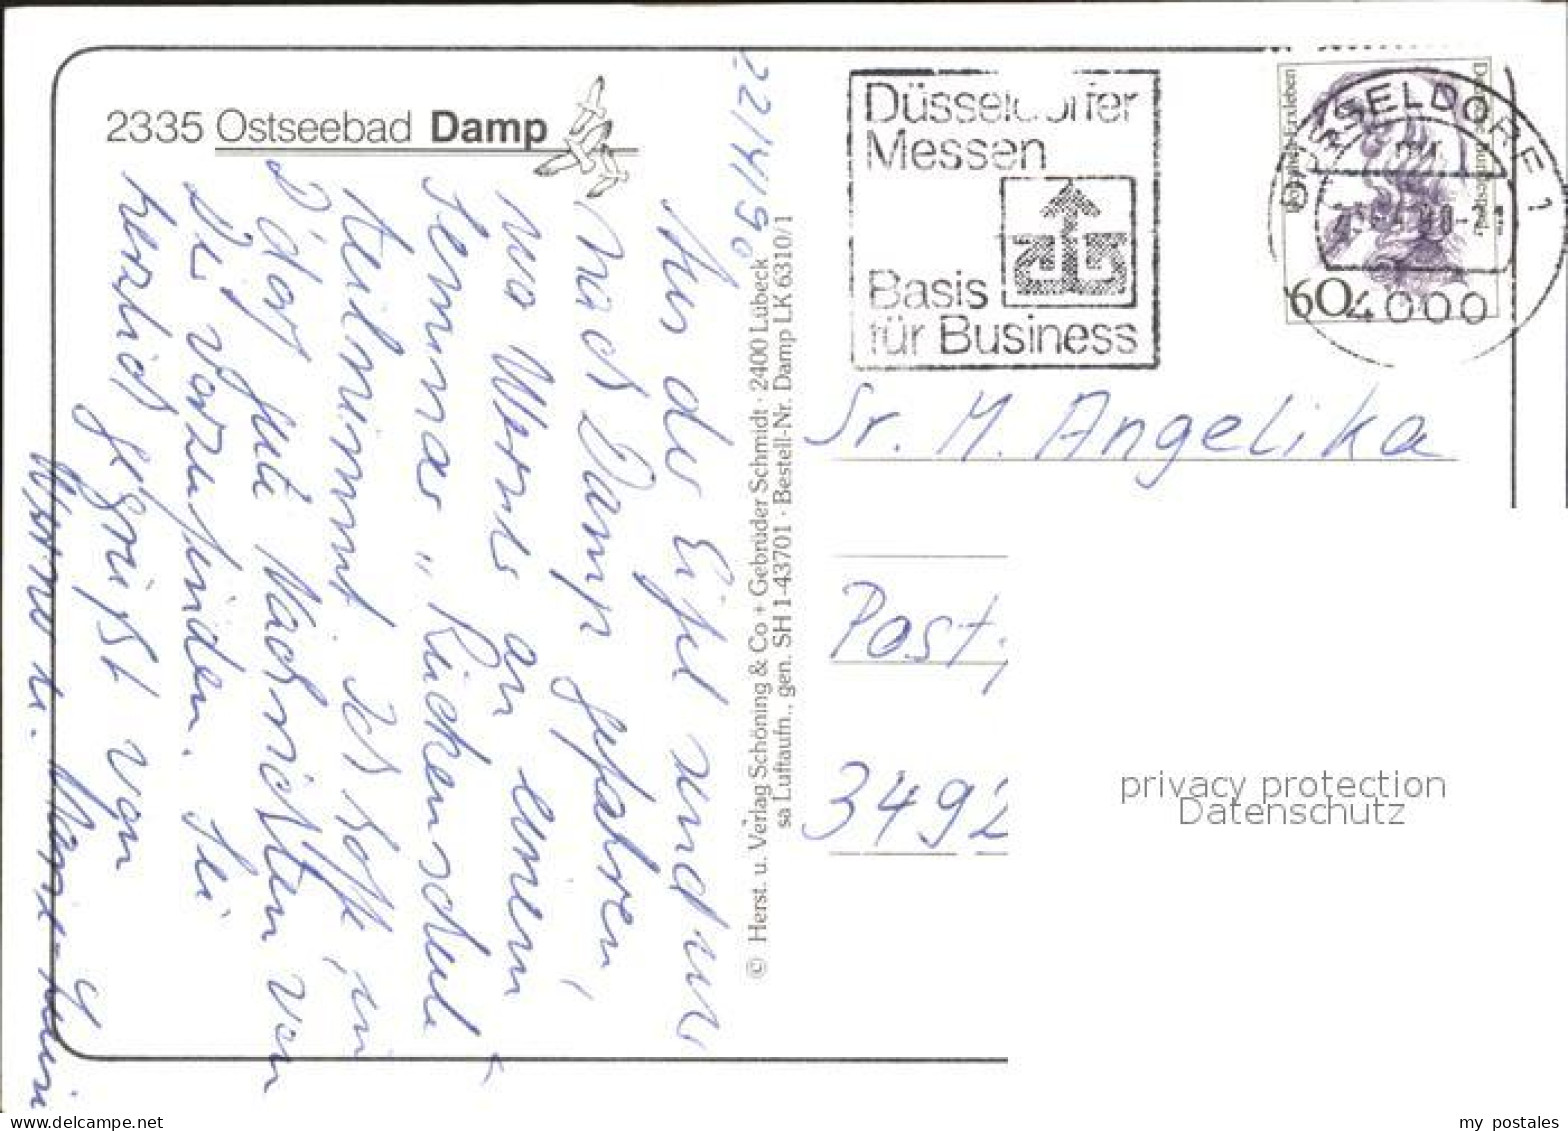 2335 Ostseebad Damp
22/4/90
Aus der Eifel sind wir
nach Damp gefahren,
wo Werner an einem
Seminar „Rückenschule“
teilnimmt. Ich hoffe, in
D'dorf gute Nachrichten von
Dir vorzufinden. Sei
herzlich gegrüßt von
Werner u.
© Herst. u. Verlag Schöning & Co + Gebrüder Schmidt · 2400 Lübeck
sa Luftaufn., gen. SH 1-43701 · Bestell-Nr. Damp LK 6310/1
Düsseldorfer
Messen
Basis
für Business
DÜSSELDORF 1
4000
60
Dorothea Erxleben
Deutsche Bundespost
Sr. M. Angelika
Post
3492
privacy protection
Datenschutz
www.delcampe.net
my_postales